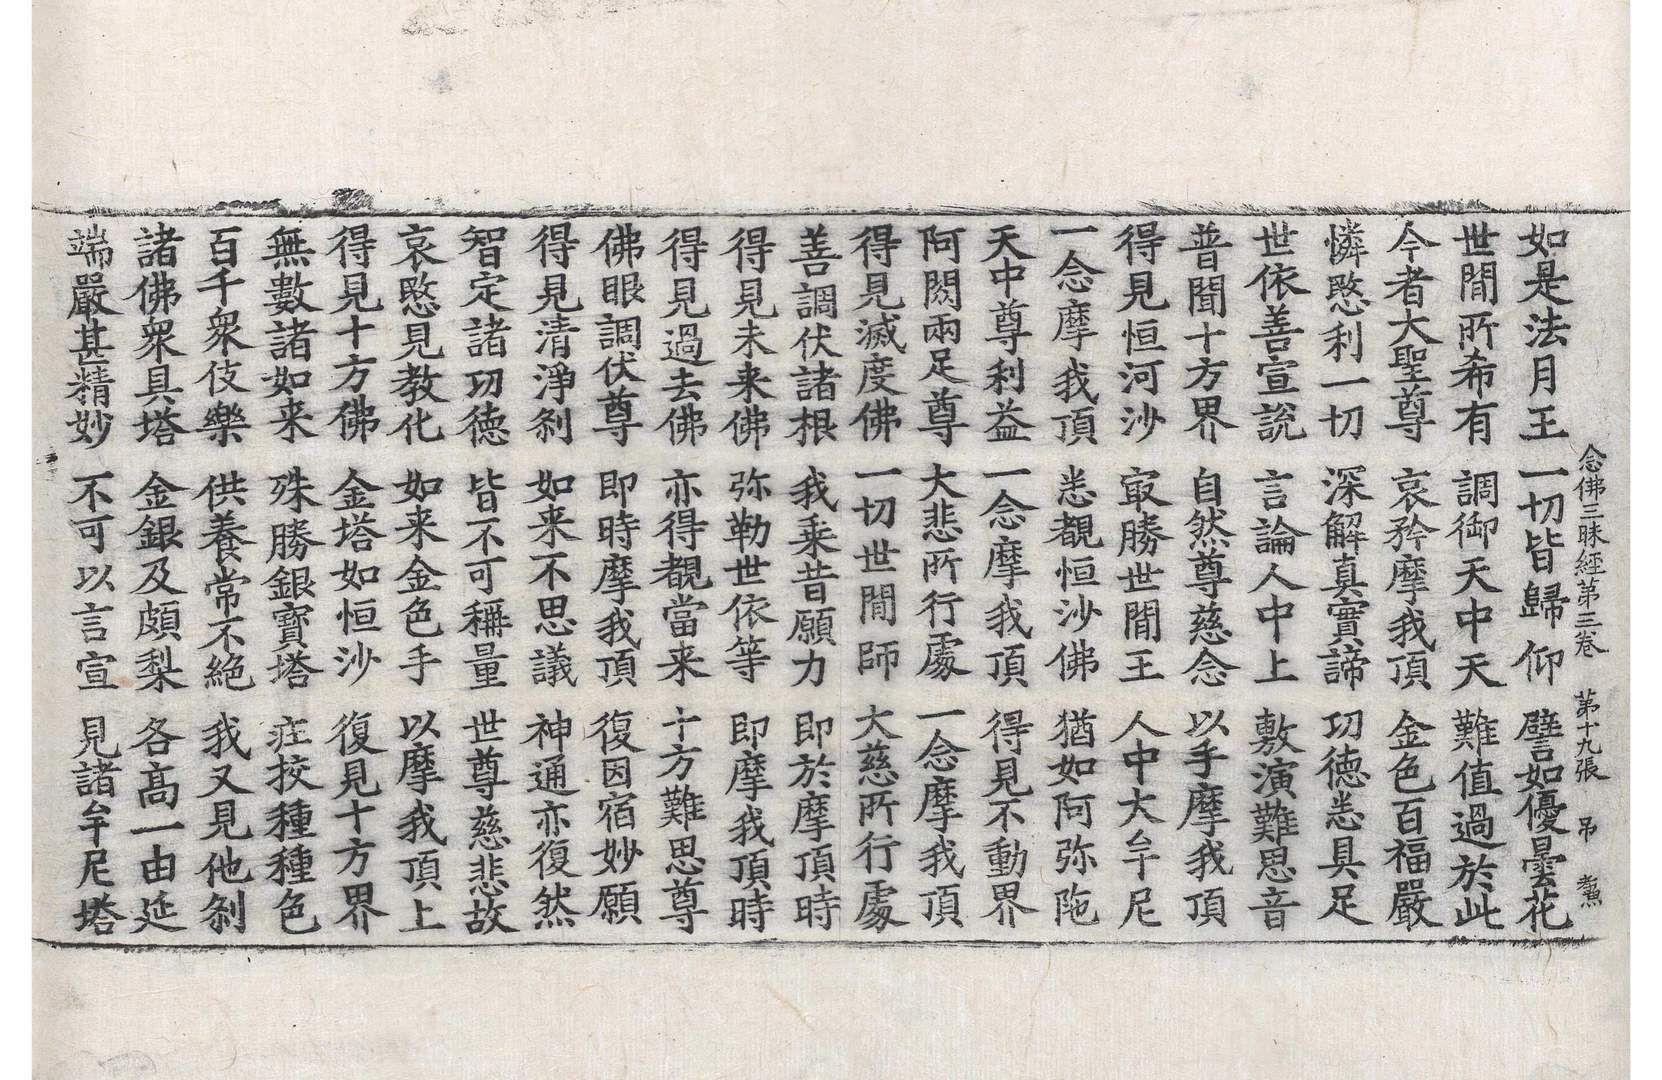 念佛三昧經第三卷 第十九張 吊
如是法月王 一切皆歸仰 譬如優曇花
世間所希有 調御天中天 難值過於此
今者大聖尊 哀矜摩我頂 金色百福嚴
憐愍利一切 深解真實諦 功德悉具足
世依善宣說 言論人中上 敷演難思音
普聞十方界 自然尊慈念 以手摩我頂
得見恒河沙 㝡勝世間王 人中大牟尼
一念摩我頂 悉覩恒沙佛 猶如阿弥陁
天中尊利益 一念摩我頂 得見不動界
阿閦兩足尊 大悲所行處 一念摩我頂
得見滅度佛 一切世間師 大慈所行處
善調伏諸根 我乗昔願力 即於摩頂時
得見未来佛 弥勒世依等 即摩我頂時
得見過去佛 亦得覩當来 十方難思尊
佛眼調伏尊 即時摩我頂 復因宿妙願
得見清淨刹 如来不思議 神通亦復然
智定諸功德 皆不可稱量 世尊慈悲故
哀愍見教化 如来金色手 以摩我頂上
得見十方佛 金塔如恒沙 復見十方界
無數諸如来 殊勝銀寶塔 莊挍種種色
百千衆伎樂 供養常不絕 我又見他刹
諸佛衆具塔 金銀及頗梨 各高一由延
端嚴甚精妙 不可以言宣 見諸牟尼塔